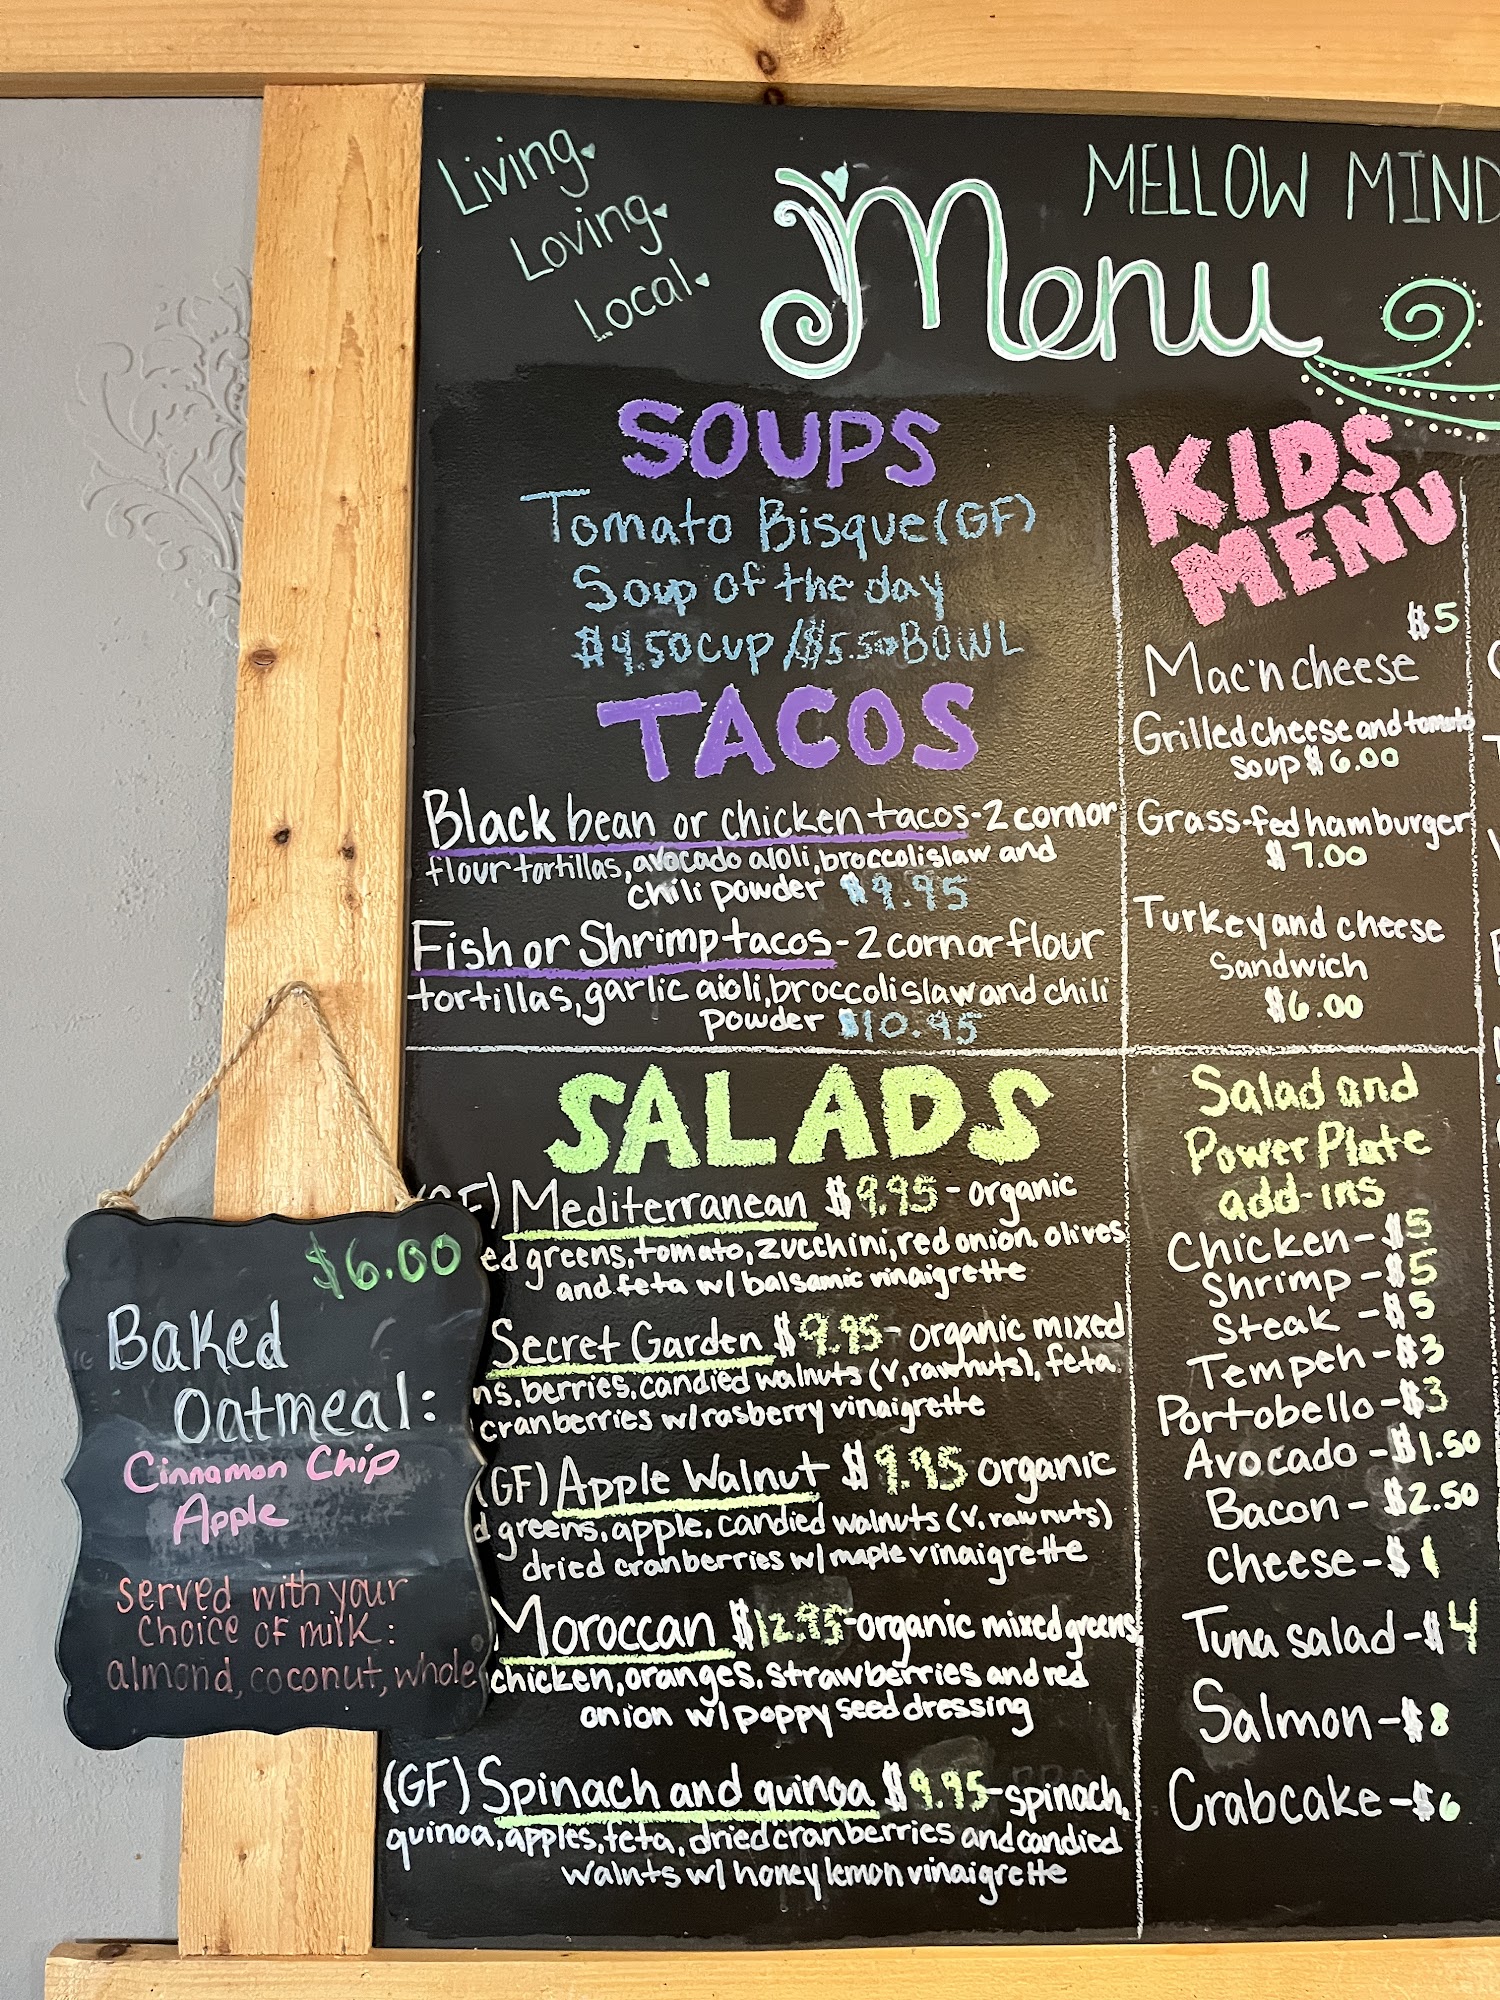 Living.
Loving.
Local.
Menu
MELLOW MIND
SOUPS
Tomato Bisque (GF)
Soup of the day
$4.50 CUP / $5.50 BOWL
TACOS
Black bean or chicken tacos - 2 corn or
flour tortillas, avocado aioli, broccoli slaw and
chili powder $9.95
Fish or Shrimp tacos - 2 corn or flour
tortillas, garlic aioli, broccoli slaw and chili
powder $10.95
KIDS
MENU
$5
Mac'n cheese
Grilled cheese and tomato
soup $6.00
Grass-fed hamburger
$7.00
Turkey and cheese
Sandwich
$6.00
SALADS
Mediterranean $9.95 - organic
ed greens, tomato, zucchini, red onion, olives
and feta w/ balsamic vinaigrette
Secret Garden $9.95 - organic mixed
ns, berries, candied walnuts (V, raw nuts), feta.
cranberries w/ rasberry vinaigrette
(GF) Apple Walnut $9.95 organic
d greens, apple, candied walnuts (V, raw nuts)
dried cranberries w/ maple vinaigrette
Moroccan $12.95 - organic mixed greens
chicken, oranges, strawberries and red
onion w/ poppy seed dressing
(GF) Spinach and quinoa $9.95 - spinach,
quinoa, apples, feta, dried cranberries and candied
walnts w/ honey lemon vinaigrette
Salad and
Power Plate
add-ins
Chicken - $5
Shrimp - $5
Steak - $5
Tempeh - $3
Portobello - $3
Avocado - $1.50
Bacon - $2.50
Cheese - $1
Tuna salad - $4
Salmon - $8
Crabcake - $6
$6.00
Baked
Oatmeal:
Cinnamon Chip
Apple
served with your
choice of milk:
almond, coconut, whole